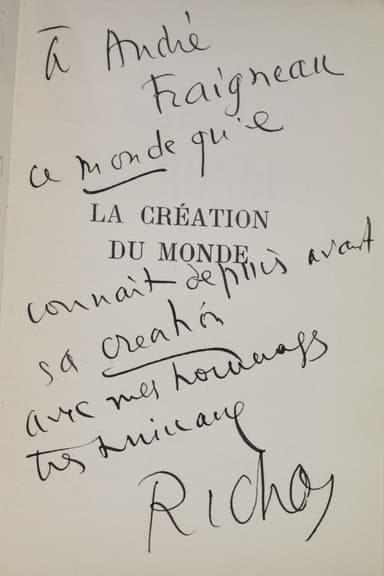 à André
Fraigneau
ce monde qu'il
LA CRÉATION
DU MONDE
connaît depuis avant
sa création
avec mes hommages
très amicaux